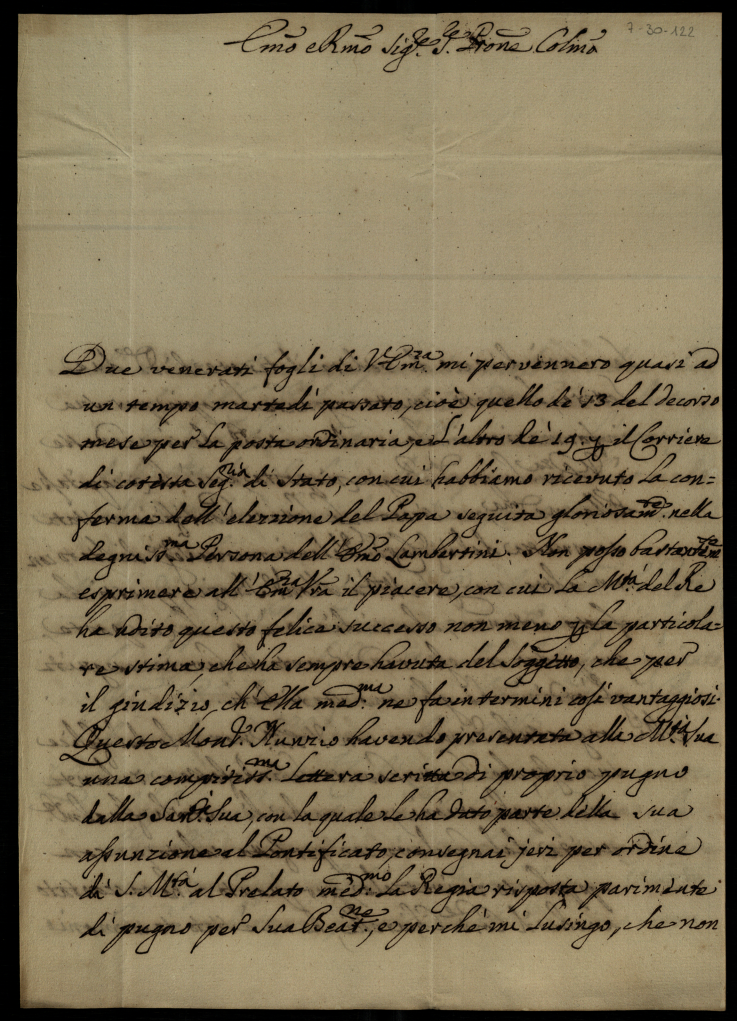 7-30-122
Emo e Rmo Sigre Pre Prone Colmo
Due venerati fogli di V Emza mi pervennero quasi ad
un tempo martedì passato, cioè quello de' 13 del decorso
mese per la posta ordinaria, e l'altro de' 19. p il Corriere
di cotesta Segria di Stato, con cui habbiamo ricevuto la con=
ferma dell'elezzione del Papa seguita gloriosamte nella
degnissma Persona dell'Emo Lambertini. Non posso bastantemte
esprimere all'Emza Vra il piacere, con cui la Mtà del Re
ha udito questo felice successo non meno p la particola=
re stima, che ha sempre havuta del Soggetto, che per
il giudizio, ch'Ella medma ne fa in termini così vantaggiosi.
Questo Monsr Nunzio havendo presentata alla Mtà Sua
una compitissma Lettera scritta di proprio pugno
dalla Santà Sua, con la quale le ha dato parte della sua
assunzione al Pontificato, consegnai jeri per ordine
di S. Mtà al Prelato medmo la Regia risposta parimente
di pugno per Sua Beatne, e perchè mi lusingo, che non